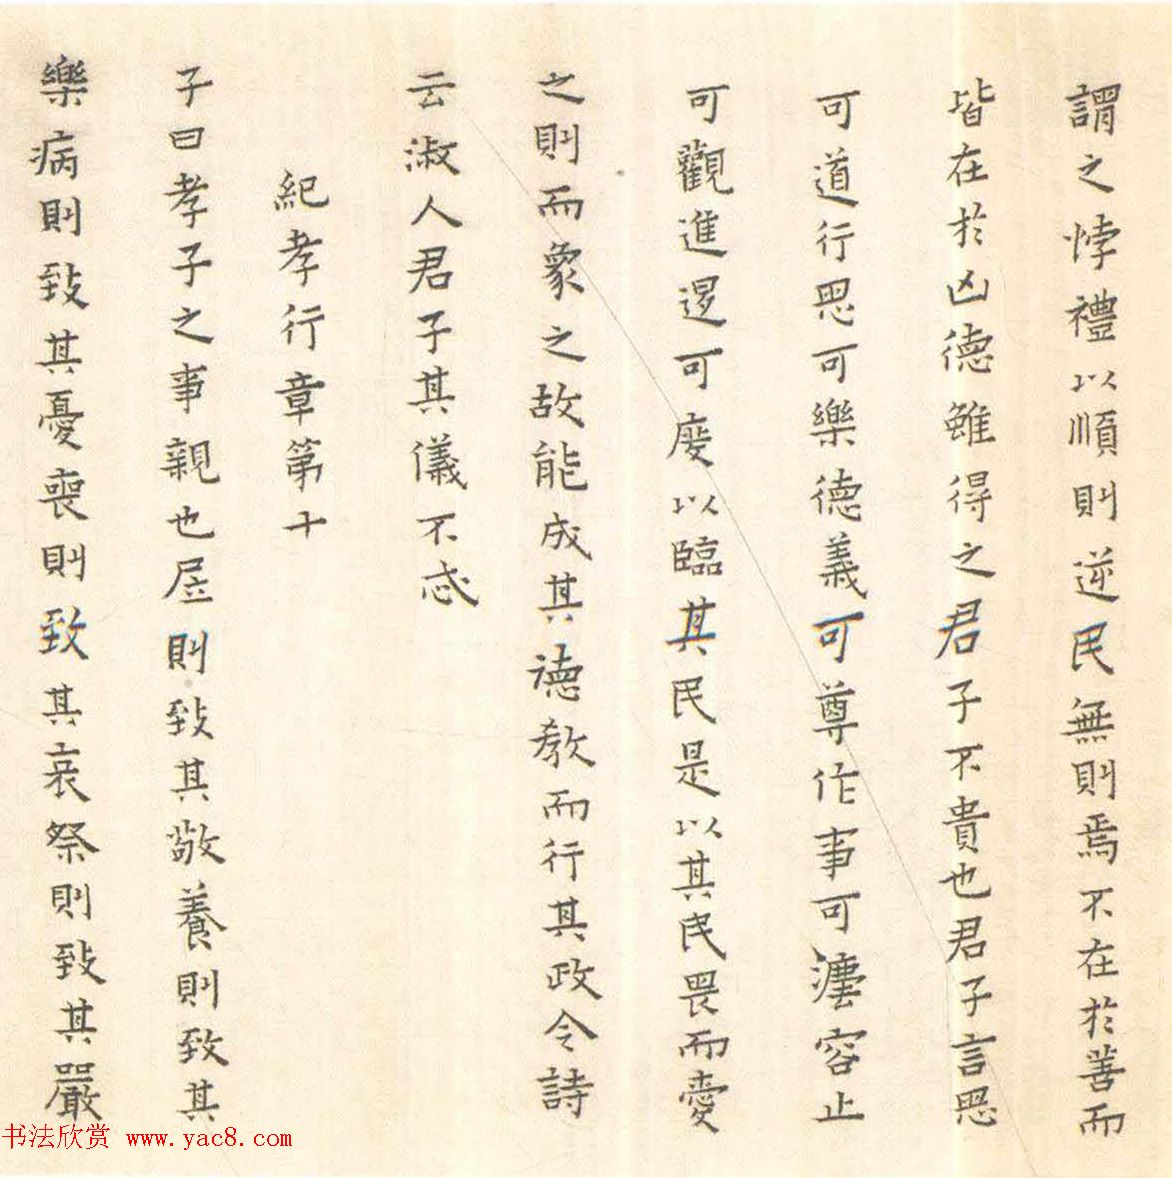 謂之悖禮以順則逆民無則焉不在於善而
皆在於凶德雖得之君子不貴也君子言思
可道行思可樂德義可尊作事可法容止
可觀進退可度以臨其民是以其民畏而愛
之則而象之故能成其德教而行其政令詩
云淑人君子其儀不忒
紀孝行章第十
子曰孝子之事親也居則致其敬養則致其
樂病則致其憂喪則致其哀祭則致其嚴
书法欣赏 www.yac8.com